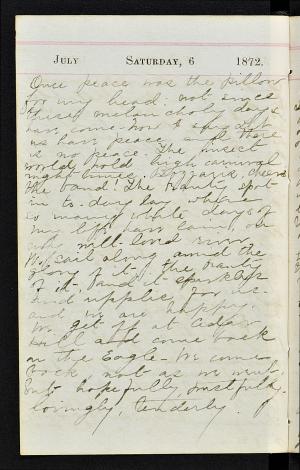 July Saturday, 6 1872.
Once peace was the pillow
for my head. not since
these melancholy days
have come
us have peace and there
is no peace. The insect
world hold high carnival
the band! The
in to-day lay where
so many white days of
my life have
and well-loved river
We sail along amid the
glory of it, the beauty
of it, and it sparkles
and ripples for us
and we are happy.
We get off at Cedar
Hill and come back
on the Eagle - We come
back, not as we went,
but hopefully, trustfully,
lovingly, tenderly.